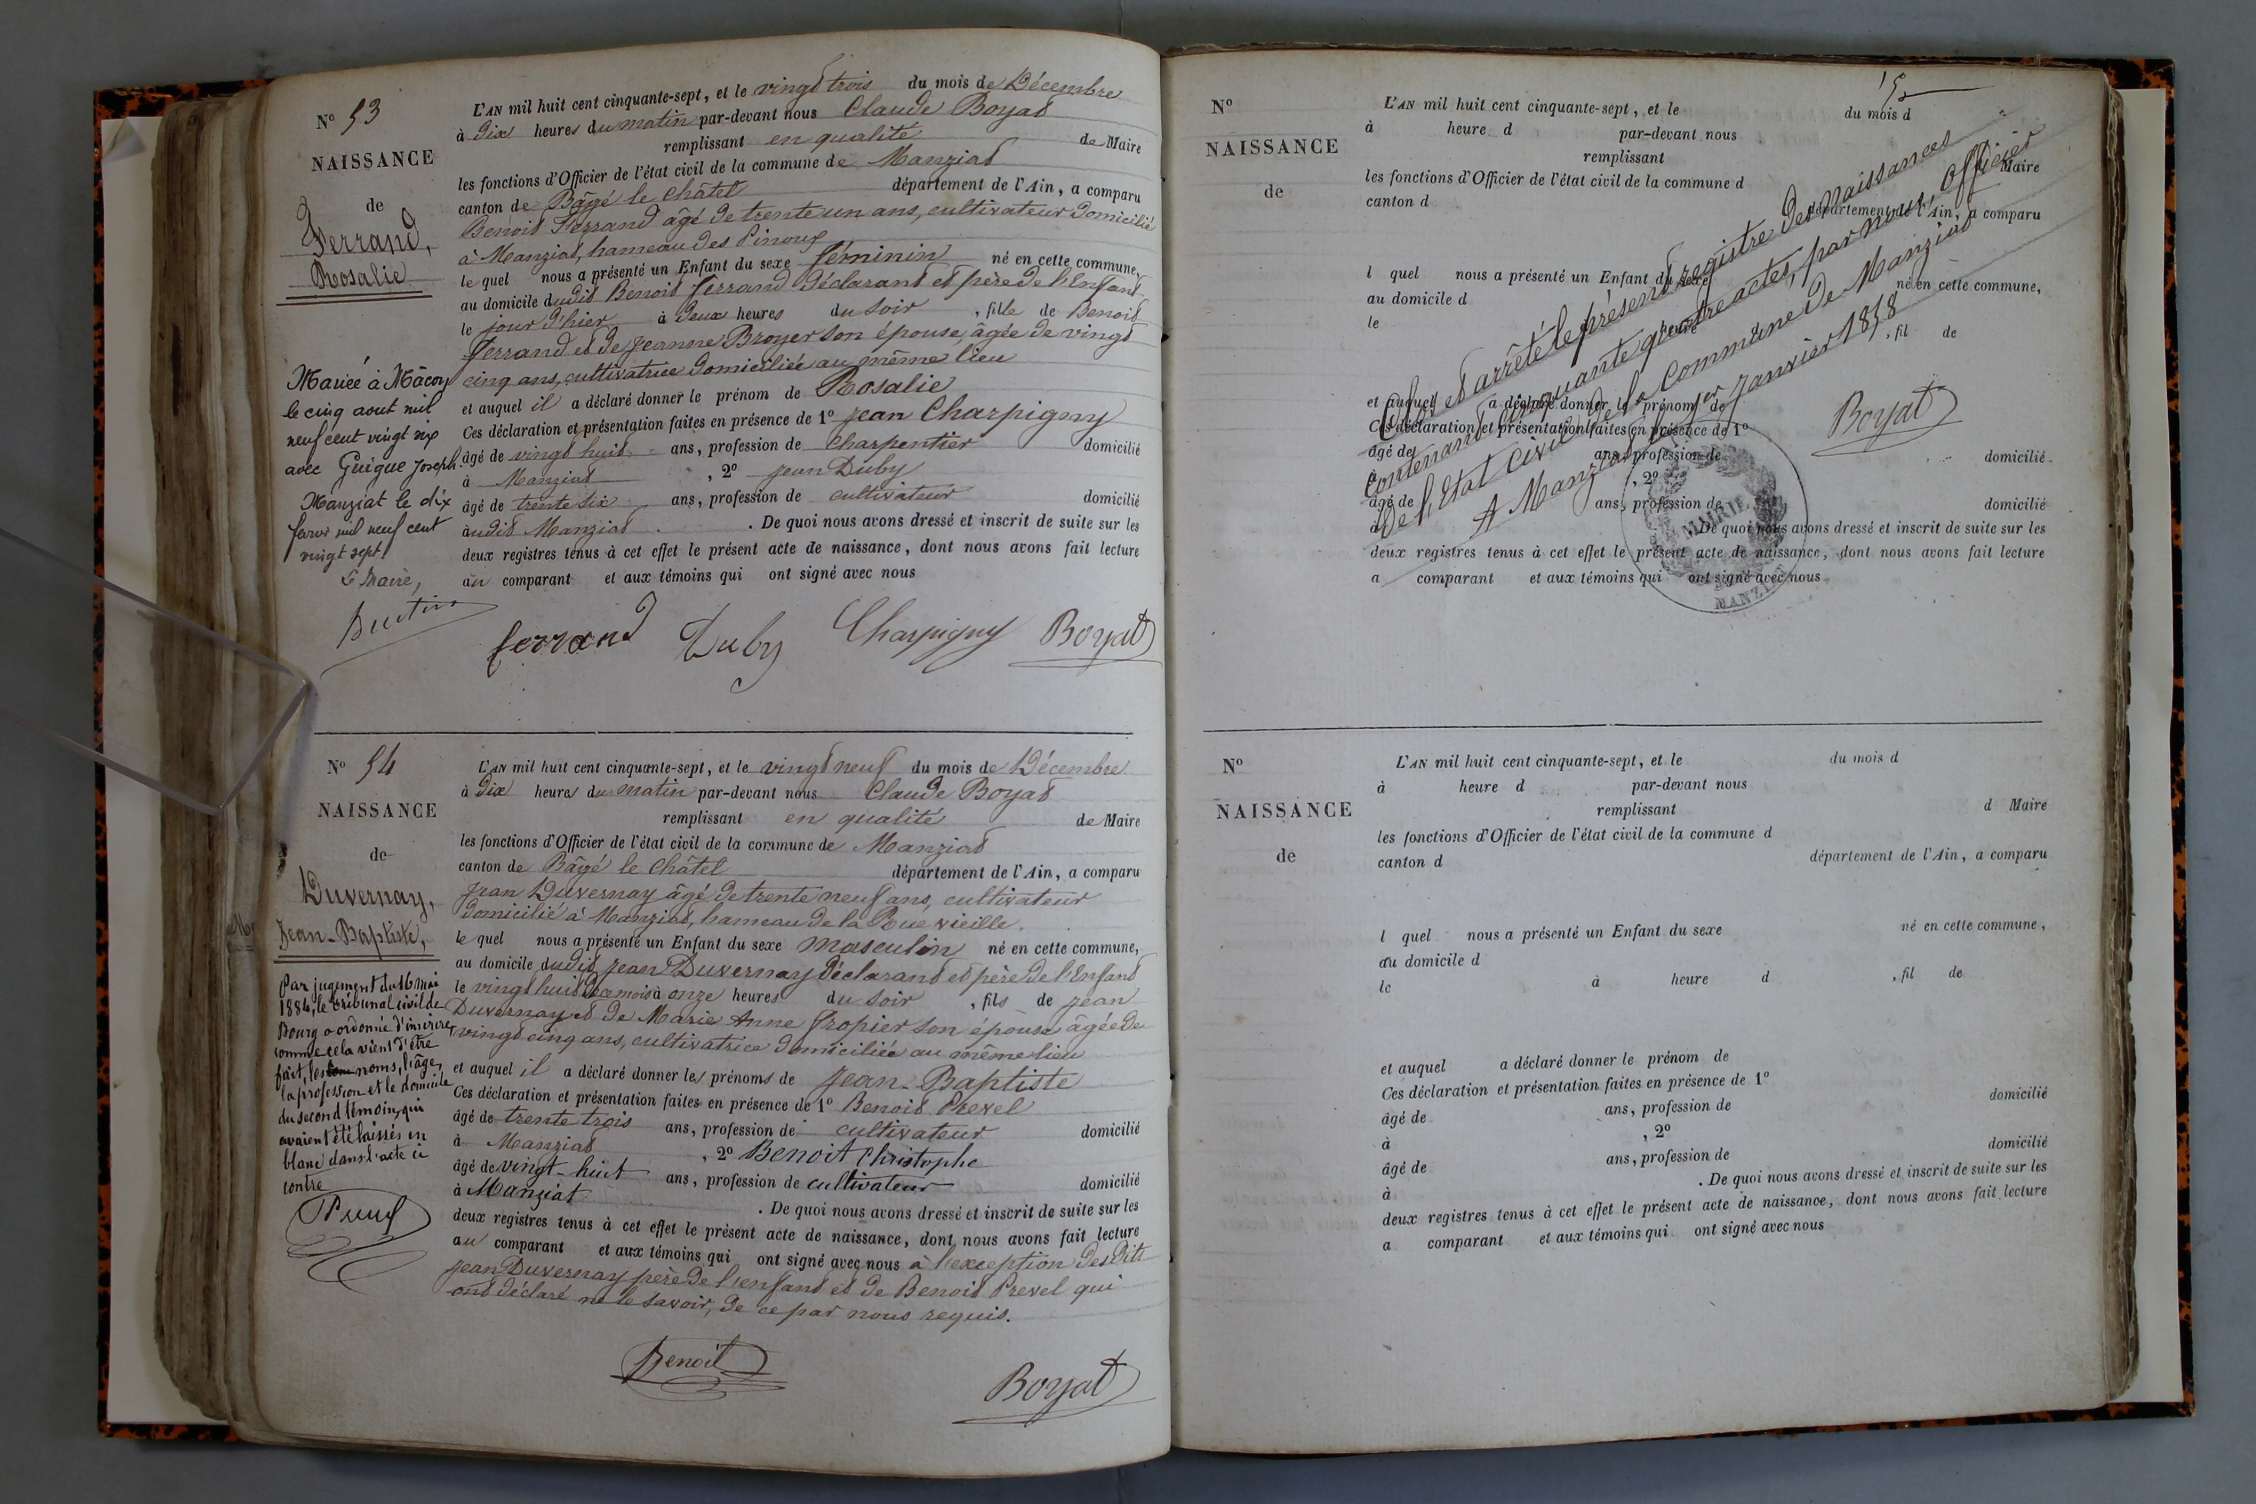 N° 53
NAISSANCE
de
Ferrand,
Rosalie
L'AN mil huit cent cinquante-sept, et le vingt trois du mois de Décembre
à dix heures du matin par-devant nous Claude Boyat
remplissant en qualité de Maire
les fonctions d'Officier de l'état civil de la commune de Manziat
canton de Bâgé le Châtel département de l'Ain, a comparu
Benoit Ferrand âgé de trente un ans, cultivateur domicilié
à Manziat, hameau des Pinoux
le quel nous a présenté un Enfant du sexe féminin né en cette commune,
au domicile dudit Benoit Ferrand déclarant et père de l'Enfant
le jour d'hier à deux heures du soir, fille de Benoit
Ferrand et de Jeanne Broyer son épouse, âgée de vingt
cinq ans, cultivatrice domiciliée au même lieu
et auquel il a déclaré donner le prénom de Rosalie
Ces déclaration et présentation faites en présence de 1° Jean Charpigny
âgé de vingt huit ans, profession de charpentier domicilié
à Manziat, 2° Jean Duby
âgé de trente six ans, profession de cultivateur domicilié
audit Manziat. De quoi nous avons dressé et inscrit de suite sur les
deux registres tenus à cet effet le présent acte de naissance, dont nous avons fait lecture
au comparant et aux témoins qui ont signé avec nous
Mariée à Mâcon
le cinq aout mil
neuf cent vingt six
avec Guigue Joseph.
Manziat le dix
mil neuf cent
vingt sept
Le Maire,
ferrand Duby Charpigny Boyat
N° 54
NAISSANCE
de
Duvernay,
Jean-Baptiste,
L'AN mil huit cent cinquante-sept, et le vingt neuf du mois de Décembre
à dix heures du matin par-devant nous Claude Boyat
remplissant en qualité de Maire
les fonctions d'Officier de l'état civil de la commune de Manziat
canton de Bâgé le Châtel département de l'Ain, a comparu
Jean Duvernay âgé de trente neuf ans, cultivateur
domicilié à Manziat, hameau de la Rue vieille.
le quel nous a présenté un Enfant du sexe masculin né en cette commune,
au domicile dudit Jean Duvernay déclarant et père de l'Enfant
le vingt huit de ce mois à onze heures du soir, fils de Jean
Duvernay et de Marie Anne Fropier son épouse âgée de
vingt cinq ans, cultivatrice domiciliée au même lieu
et auquel il a déclaré donner les prénoms de Jean-Baptiste
Ces déclaration et présentation faites en présence de 1° Benoit Prevel
âgé de trente trois ans, profession de cultivateur domicilié
à Manziat, 2° Benoit Christophe
âgé de vingt-huit ans, profession de cultivateur domicilié
à Manziat. De quoi nous avons dressé et inscrit de suite sur les
deux registres tenus à cet effet le présent acte de naissance, dont nous avons fait lecture
au comparant et aux témoins qui ont signé avec nous à l'exception desdits
Jean Duvernay père de l'enfant et de Benoit Prevel qui
ont déclaré ne le savoir, de ce par nous requis.
Par jugement du 16 mai
1884, le tribunal civil de
Bourg a ordonné d'inscrire
comme cela vient d'être
fait, les noms, l'âge,
la profession et le domicile
du second témoin, qui
avaient été laissés en
blanc dans l'acte ci
contre
Benoit
Boyat
N°
NAISSANCE
de
L'AN mil huit cent cinquante-sept, et le du mois d
à heure d par-devant nous
remplissant Maire
les fonctions d'Officier de l'état civil de la commune d
canton d département de l'Ain, a comparu
l quel nous a présenté un Enfant du sexe né en cette commune,
au domicile d
le heure, fil de
et auquel a déclaré donner le prénom de
Ces déclaration et présentation faites en présence de 1°
âgé de ans, profession de domicilié
à, 2°
âgé de ans, profession de domicilié
à. De quoi nous avons dressé et inscrit de suite sur les
deux registres tenus à cet effet le présent acte de naissance, dont nous avons fait lecture
a comparant et aux témoins qui ont signé avec nous
Clos et arrêté le présent registre des naissances
contenant cinquante quatre actes, par nous officier
de l'Etat civil de la Commune de Manziat
A Manziat le 1er Janvier 1858
Boyat
MAIRIE
MANZIAT
N°
NAISSANCE
de
L'AN mil huit cent cinquante-sept, et le du mois d
à heure d par-devant nous
remplissant d Maire
les fonctions d'Officier de l'état civil de la commune d
canton d département de l'Ain, a comparu
l quel nous a présenté un Enfant du sexe né en cette commune,
au domicile d
le à heure d, fil de
et auquel a déclaré donner le prénom de
Ces déclaration et présentation faites en présence de 1°
âgé de ans, profession de domicilié
à, 2°
âgé de ans, profession de domicilié
à. De quoi nous avons dressé et inscrit de suite sur les
deux registres tenus à cet effet le présent acte de naissance, dont nous avons fait lecture
a comparant et aux témoins qui ont signé avec nous